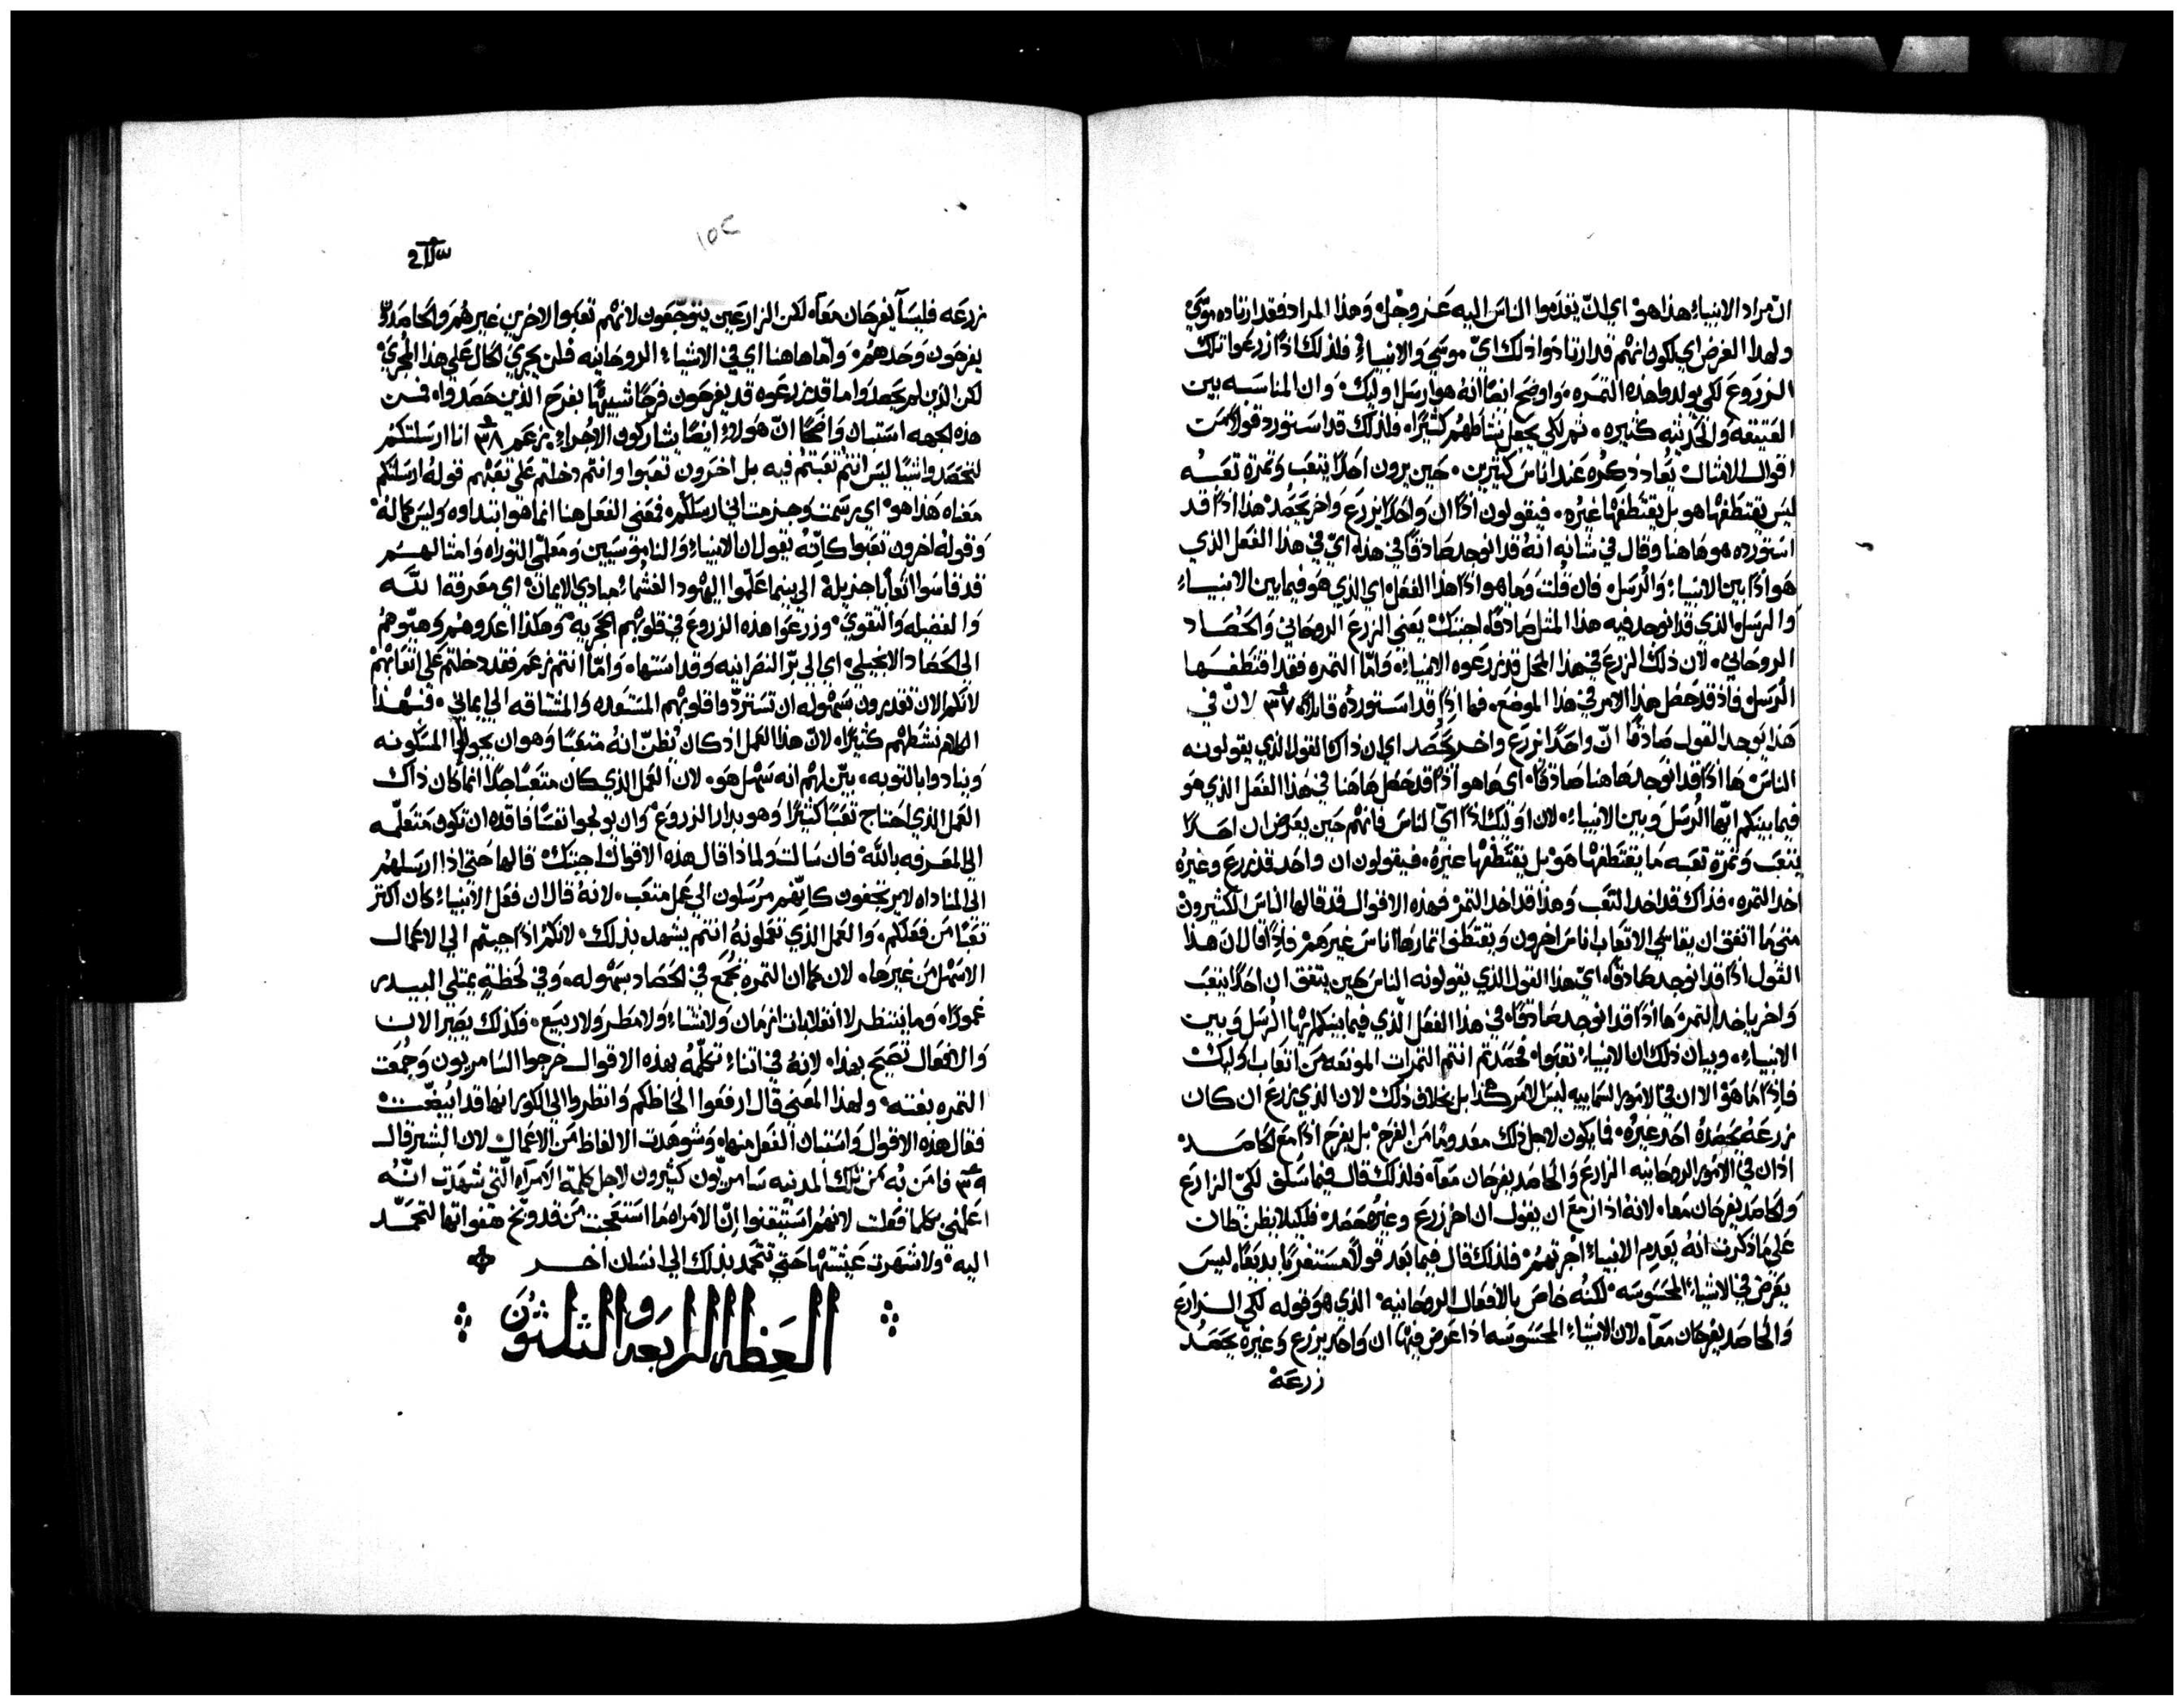 انّ مراد الانبياءِ هذا هو اي انّ يقدّموا الناسَ اليه عَز وجّل وَهذا المراد فقد ارتاده موسَي
ولهذا الغرض اي لكون انهم قد ارتادوا ذلك ايّ موسَي وَالانبياءِ فلذلك اذاً زرعَوا تلك
الزروعَ لكي يولدوا هذه الثمره وَاوضح ايضاً انهُ هو ارسَل اوليك وَان المناسَبه بين
العَتيقه وَالحَديثه كثيره ثم لكي يجعل نشاطهُم كثيراً فلذلك قد استَورد قولاً مَن
اقوال الامثال يُعاد ذكرُه عَند اناسَ كثيرين حَين يرون احَداً يتعَب وَثمرة تعَبه
ليسَ يقتطفها هو بل يقتطفها غيره فيقولون اذاً ان وَاحَداً يزرعَ وَاخر يحَصُد هذا اذاً قد
استَورده هو هاهنا وقال في شانه انهُ قد انوجد صَادقاً في هذا ايّ في هذا الفعَل الذي
هَو اذاً بين الانبياءِ وَالرسَل فان قُلت وَما هو اذاً هذا الفعَل اي الذي هَو فيما بين الانبياءِ
وَالرسَل الذي قد انوجد فيه هذا المثل صَادقاً اجبتَك يعَني الزرع الروحَاني وَالحَصَاد
الروحَاني لان ذلك الزرعَ في هذا المحَل قد زرعَوه الانبياءِ وَامّا الثمره فقد اقتطفها
الرسَل فاذ قد حَصَل هذا الامر في هذا الموضع فما اذاً قد استَورده قايلاً ٣٧ لانّ في
هَذا يوجد القول صَادقاً انّ وَاحَداً يزرع واخر يحَصَد اي ان ذاك القول الذي يقولونه
الناسَ ها اذاً قد انوجد هَاهنا صَادقاً اي ها هو اذاً قد حَصَل هَاهَنا في هَذا الفعَل الذي هَو
فيما بينكم ايّها الرُسَل وَبين الانبياءِ لان اوليك اذاً ايّ الناسَ فانهم حَين يعَرض ان احَداً
يتعَب وَثمرة تعَبه مَا يقتطفها هَو بل يقتطفها غيرهُ فيقولون ان واحَد قد زرعَ وغيرُه
اخد الثمره فذاك قد اخد التعَب وَهذا قد اخد الثمر فهذه الاقوال قد قالها الناسَ الكثيرون
متي ما اتفق ان يقاسَي الاتعَاب اناسَ اخرون وَيقتطف اثمارها اناسَ غيرهمْ فاذاً قال ان هذا
القول اذاً قد انوجد صَادقاً ايّ هذا القول الذي يقولونه الناسَ حَين يتفق ان احَداً يتعَب
وَاخر ياخد الثمره هَا اذاً قد انوجد صَادقاً في هذا الفعَل الّذي فيما بينكم ايّها الرسُل وَبين
الانبياءِ وبيان ذلك ان الانبياءِ تعَبوا فحَصَدتم انتم الثمرات المونعَه مَن اتعَاب اوليك
فاذاً مَا هَو الا ان في الامَور السَماييه ليسَ الامَر هَكذا بل بخلاف ذلك لان الذي يزرعَ ان كان
زرعَهُ يحَصَدهُ احَد غيرُه فما يكون لاجل ذلك معَدوماً مَن الفرحْ بل يفرحَ اذاً معَ الحَاصَد
اذان في الامَور الروحَانيه الزارعَ وَالحَاصَد يفرحَان معَاً فلذلك قال فيما سَلف لكيّ الزارع
وَالحَاصَد يفرحَان معَاً لانهُ اذ ازمعَ ان يقول ان اخر زرعَ وغيرهُ حَصَد فلكيلا يظن ظان
عَلي مَا ذكرت انهُ يعَدم الانبياءِ اجرتهمُ فلذلك قال فيما بَعَد قولاً مُستغرباً بديعَاً ليسَ
يعَرض في الاشياءِ المحَسَوسَه لكنُه خاصَ بالافعَال الروحَانيه الذي هوَ قوله لكي الزارعَ
وَالحَاصَد يفرحَان معَاً لان الاشياءِ المحَسَوسَه اذا عَرض فيها ان وَاحَد يزرع وَغيرهُ يحَصَد
زرعَهُ
١٥٢
زرعَه فليسَا يفرحَان معَاً لكن الزارعَين يتوجّعَون لانهم تعَبوا لاخرين غيرهمُ وَالحَاصَدين
يفرحَون وَحَدهمُ وَامّا هاهنا اي في الاشياءِ الروحَانيه فلن يجريّ الحَال عَلي هذا المجري
لكن الذين لم يحَصَدوا ما قد زرعَوه قد يفرحَون فرحَاً شبيهاً بفرحَ الذين حَصَدواه فمن
هذه الجهه استَبان وَاضحَاً انّ هولاءِ ايضاً يشاركون الاجراءِ بزعَمه ٣٨ انا ارسَلتكم
لتحَصَدوا شيّاً ليسَ انتم تعَبتم فيه بل اخرَون تعَبوا وانتم دخلتم عَلي تعَبهم قوله ارسَلتكم
معَناه هَذا هو اي رسَمت وجزمت اني ارسَلكم فمعَني الفعَل هنا انما هو ابتداوه وَليسَ كمالهُ
وَقوله اخرون تعَبوا كانّهُ يقول ان الانبياءِ وَالنامَوسَيين وَمعَلّمي التوراه وَامثالهم
قد قاسَوا اتعَاباً جزيله الي بينما عَلّموا اليهود الغشماءِ مبادي الايمان اي معَرفة اللَّه
وَالفضيله وَالتقوي وزرعَوا هذه الزروعَ في قلوبهم الحَجريه وَهَكذا اعَدوهم وَهيّوهُم
الي الحَصَاد الانجيلي اي الي برّ النصَرانيه وَقداستَها وَامّا انتم بزعَمه فقد دخلتم عَلي اتعَابهم
لانكم الان تقدرون بسَهوله ان تستَردّوا قلوبهم المستَعَده وَالمشتاقه الي ايماني فبهذا
الكلام نشطهم كثيراً لانّ هذا العَمل اذ كان يُظنّ انهُ متعَباً وَهو ان يجولوا المسَكونه
وَينادوا بالتوبه بيّن لهم انه سَهل هَو لان العَمل الذي كان متعَباً جداً انما كان ذاك
العَمل الذي احَتاج تعَباً كثيراً وَهو بدار الزروعَ وَان يولجوا نفسَاً فاقده ان تكون مَتعَلّمه
الي المعَرفه باللَّه فان سَالت وَلماذا قال هذه الاقوال اجبتَك قالها حَتي اذا ارسَلهم
الي المناداه لا يرتجفون كانّهم مرُسَلون الي عَمل متعَب لانهُ قال ان فعَل الانبياءِ كان اكثر
تعَباً مَن فعَلكم وَالعَمل الذي تعَملونهُ انتم يشهد بذلك لانكم اذاً جيتم الي الاعَمال
الاسَهل مَن غيرها لان كما ان الثمره تجمعَ في الحَصَاد بسَهوله وَفي لحَظةٍ يمتلي البيدر
غموراً وَما ينتظر لا انقلابات ازمان وَلا شتاءِ وَلا مطر وَلا ربيعَ فكذلك يصَير الان
وَالافعَال تصَيح بهذا لانهُ في اثناءِ تكلّمهُ بهذه الاقوال خرجوا السَامريون وَجمُعَت
الثمره بغتةً ولهذا المعَني قال ارفعَوا الحَاظكم وَانظروا الي الكور انها قد ابيضّت
فقال هذه الاقوال وَاستَبان الفعَل منها وَشوهَدت الالفاظ مَن الاعَمال لان البشير قال
٣٩ فامَن بُه مَن تلك المدينه سَامريّون كثيرون لاجل كلمة الامَراه التي شهَدت انّهُ
اعَلمني بكلما فعَلت لانهمُ استَيقنوا انّ الامَراه مَا استَعَجبت مَن قد وبّخ هفواتها لتحَمَد
اليه وَلا شهرت عَيشتها حَتي تتحَمد بذلك الي انسَان اخر
العَظه الرابعَه والثلثون